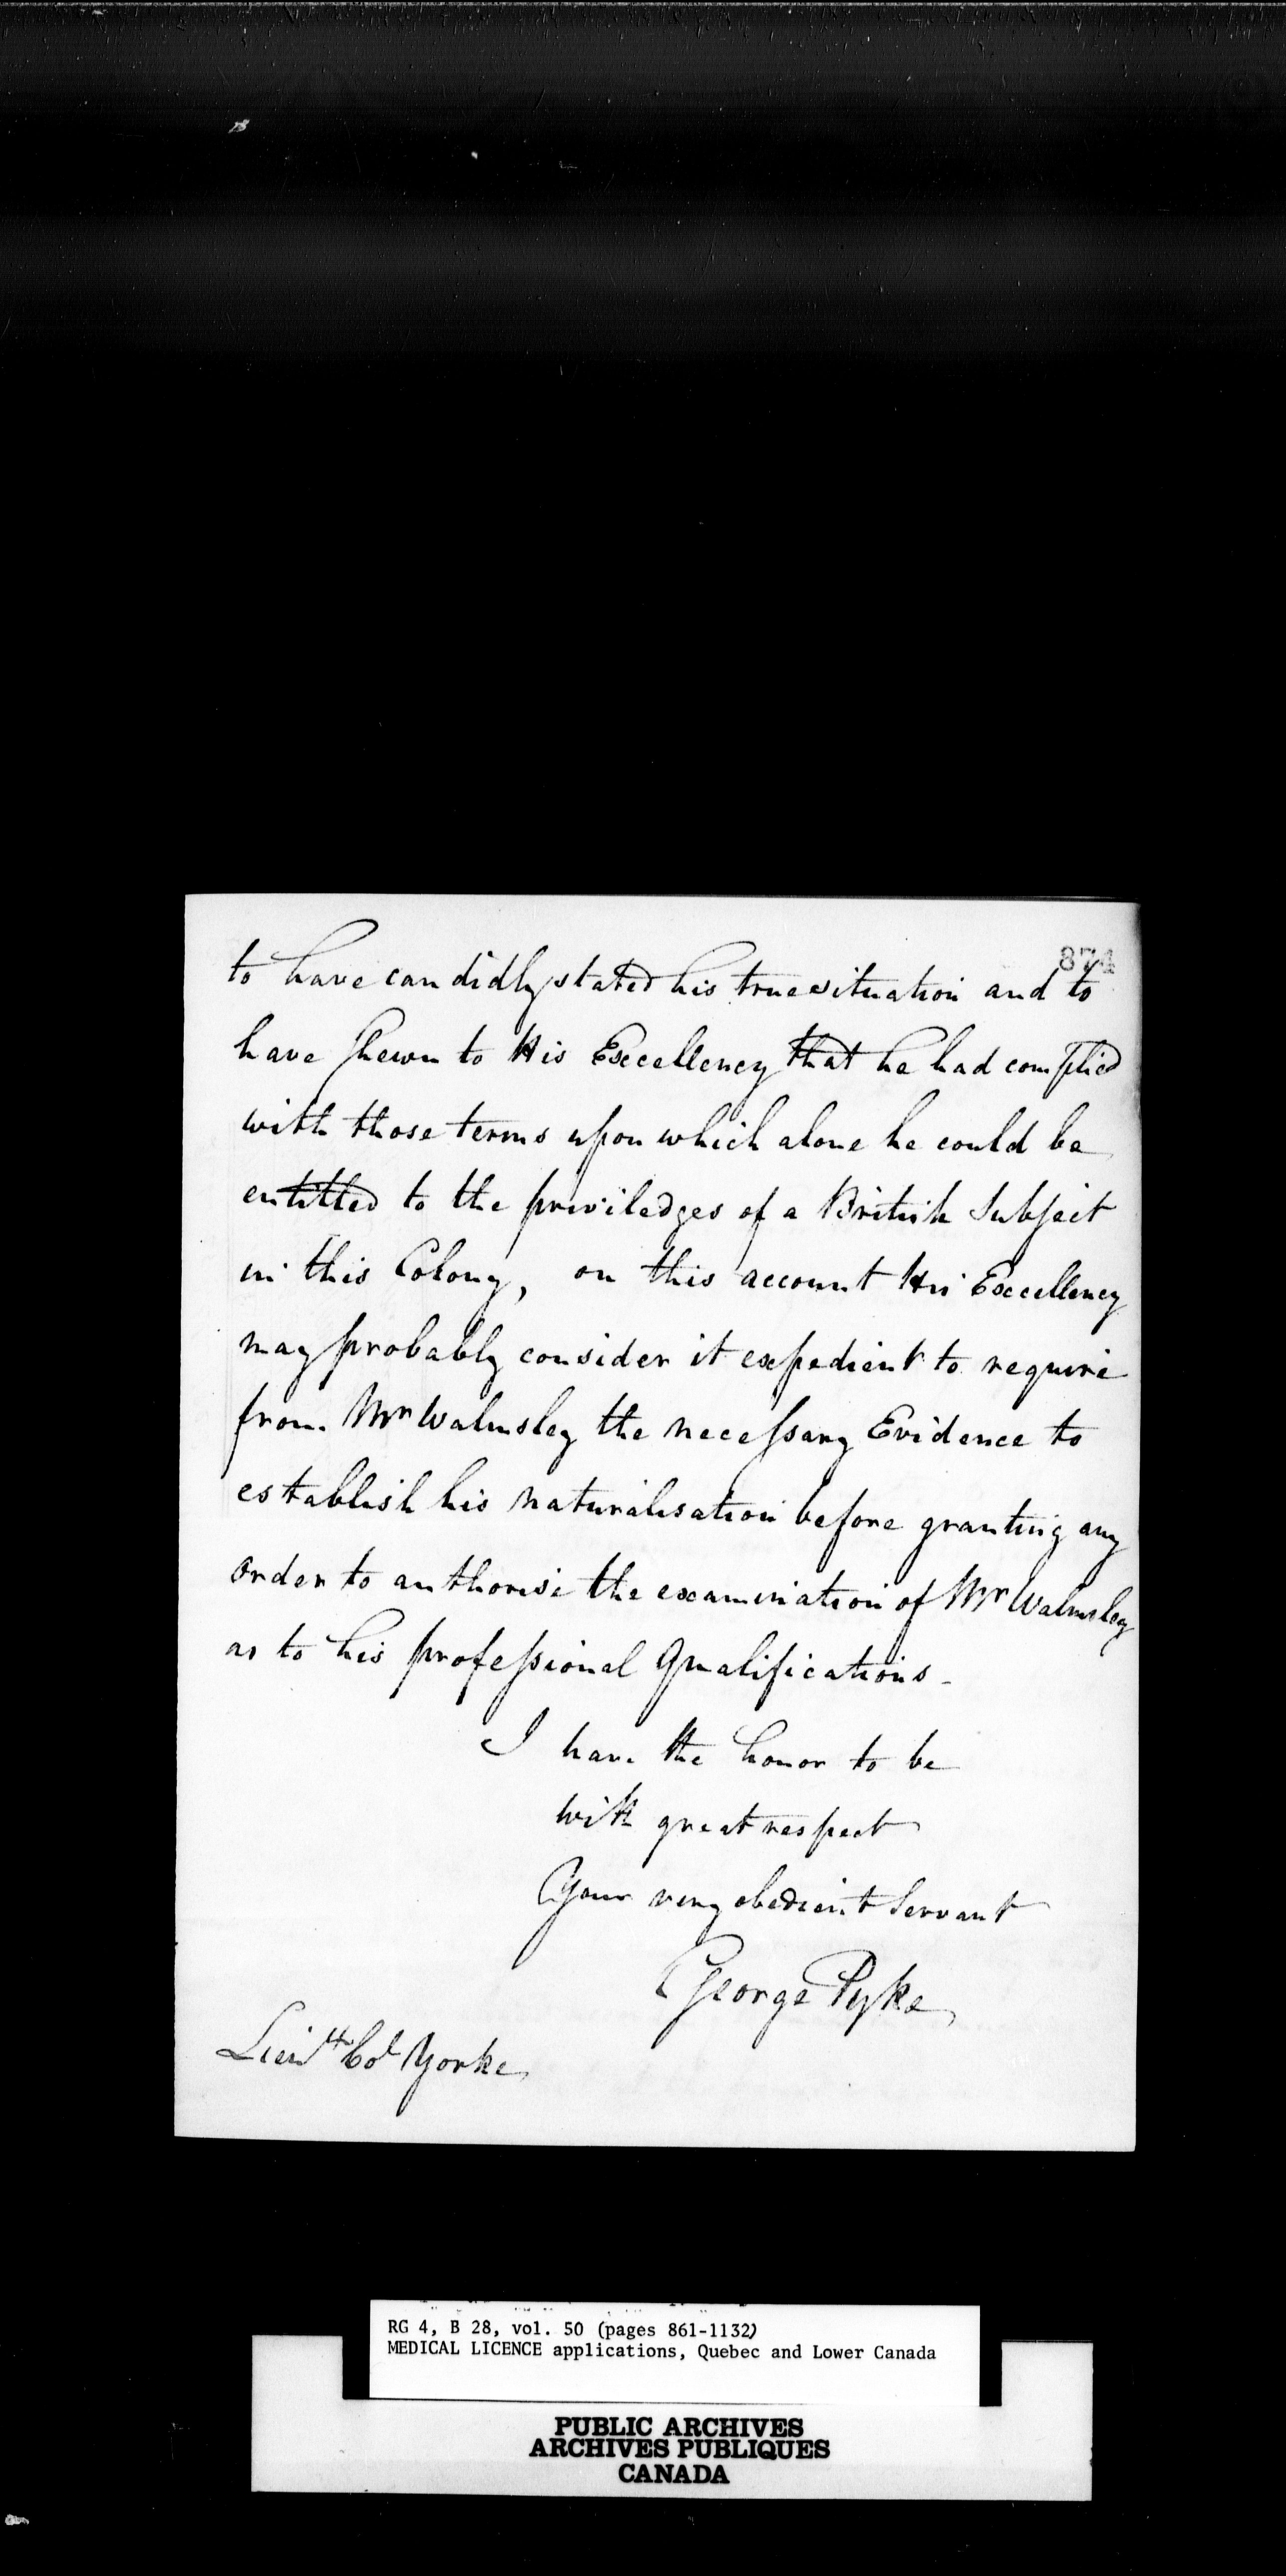 874
to have candidly stated his true situation and to
have shewn to His Excellency that he had complied
with those terms upon which alone he could be
entitled to the priviledges of a British Subject
in this Colony, on this account His Excellency
may probably consider it expedient to require
from Mr Walmsley the necessary Evidence to
establish his naturalisation before granting any
order to authorise the examination of Mr Walmsley
as to his professional Qualifications -
I have the honor to be
with great respect
Your very obedient Servant
George Pyke
Lieutt Col Yorke
RG 4, B 28, vol. 50 (pages 861-1132)
MEDICAL LICENCE applications, Quebec and Lower Canada
PUBLIC ARCHIVES
ARCHIVES PUBLIQUES
CANADA